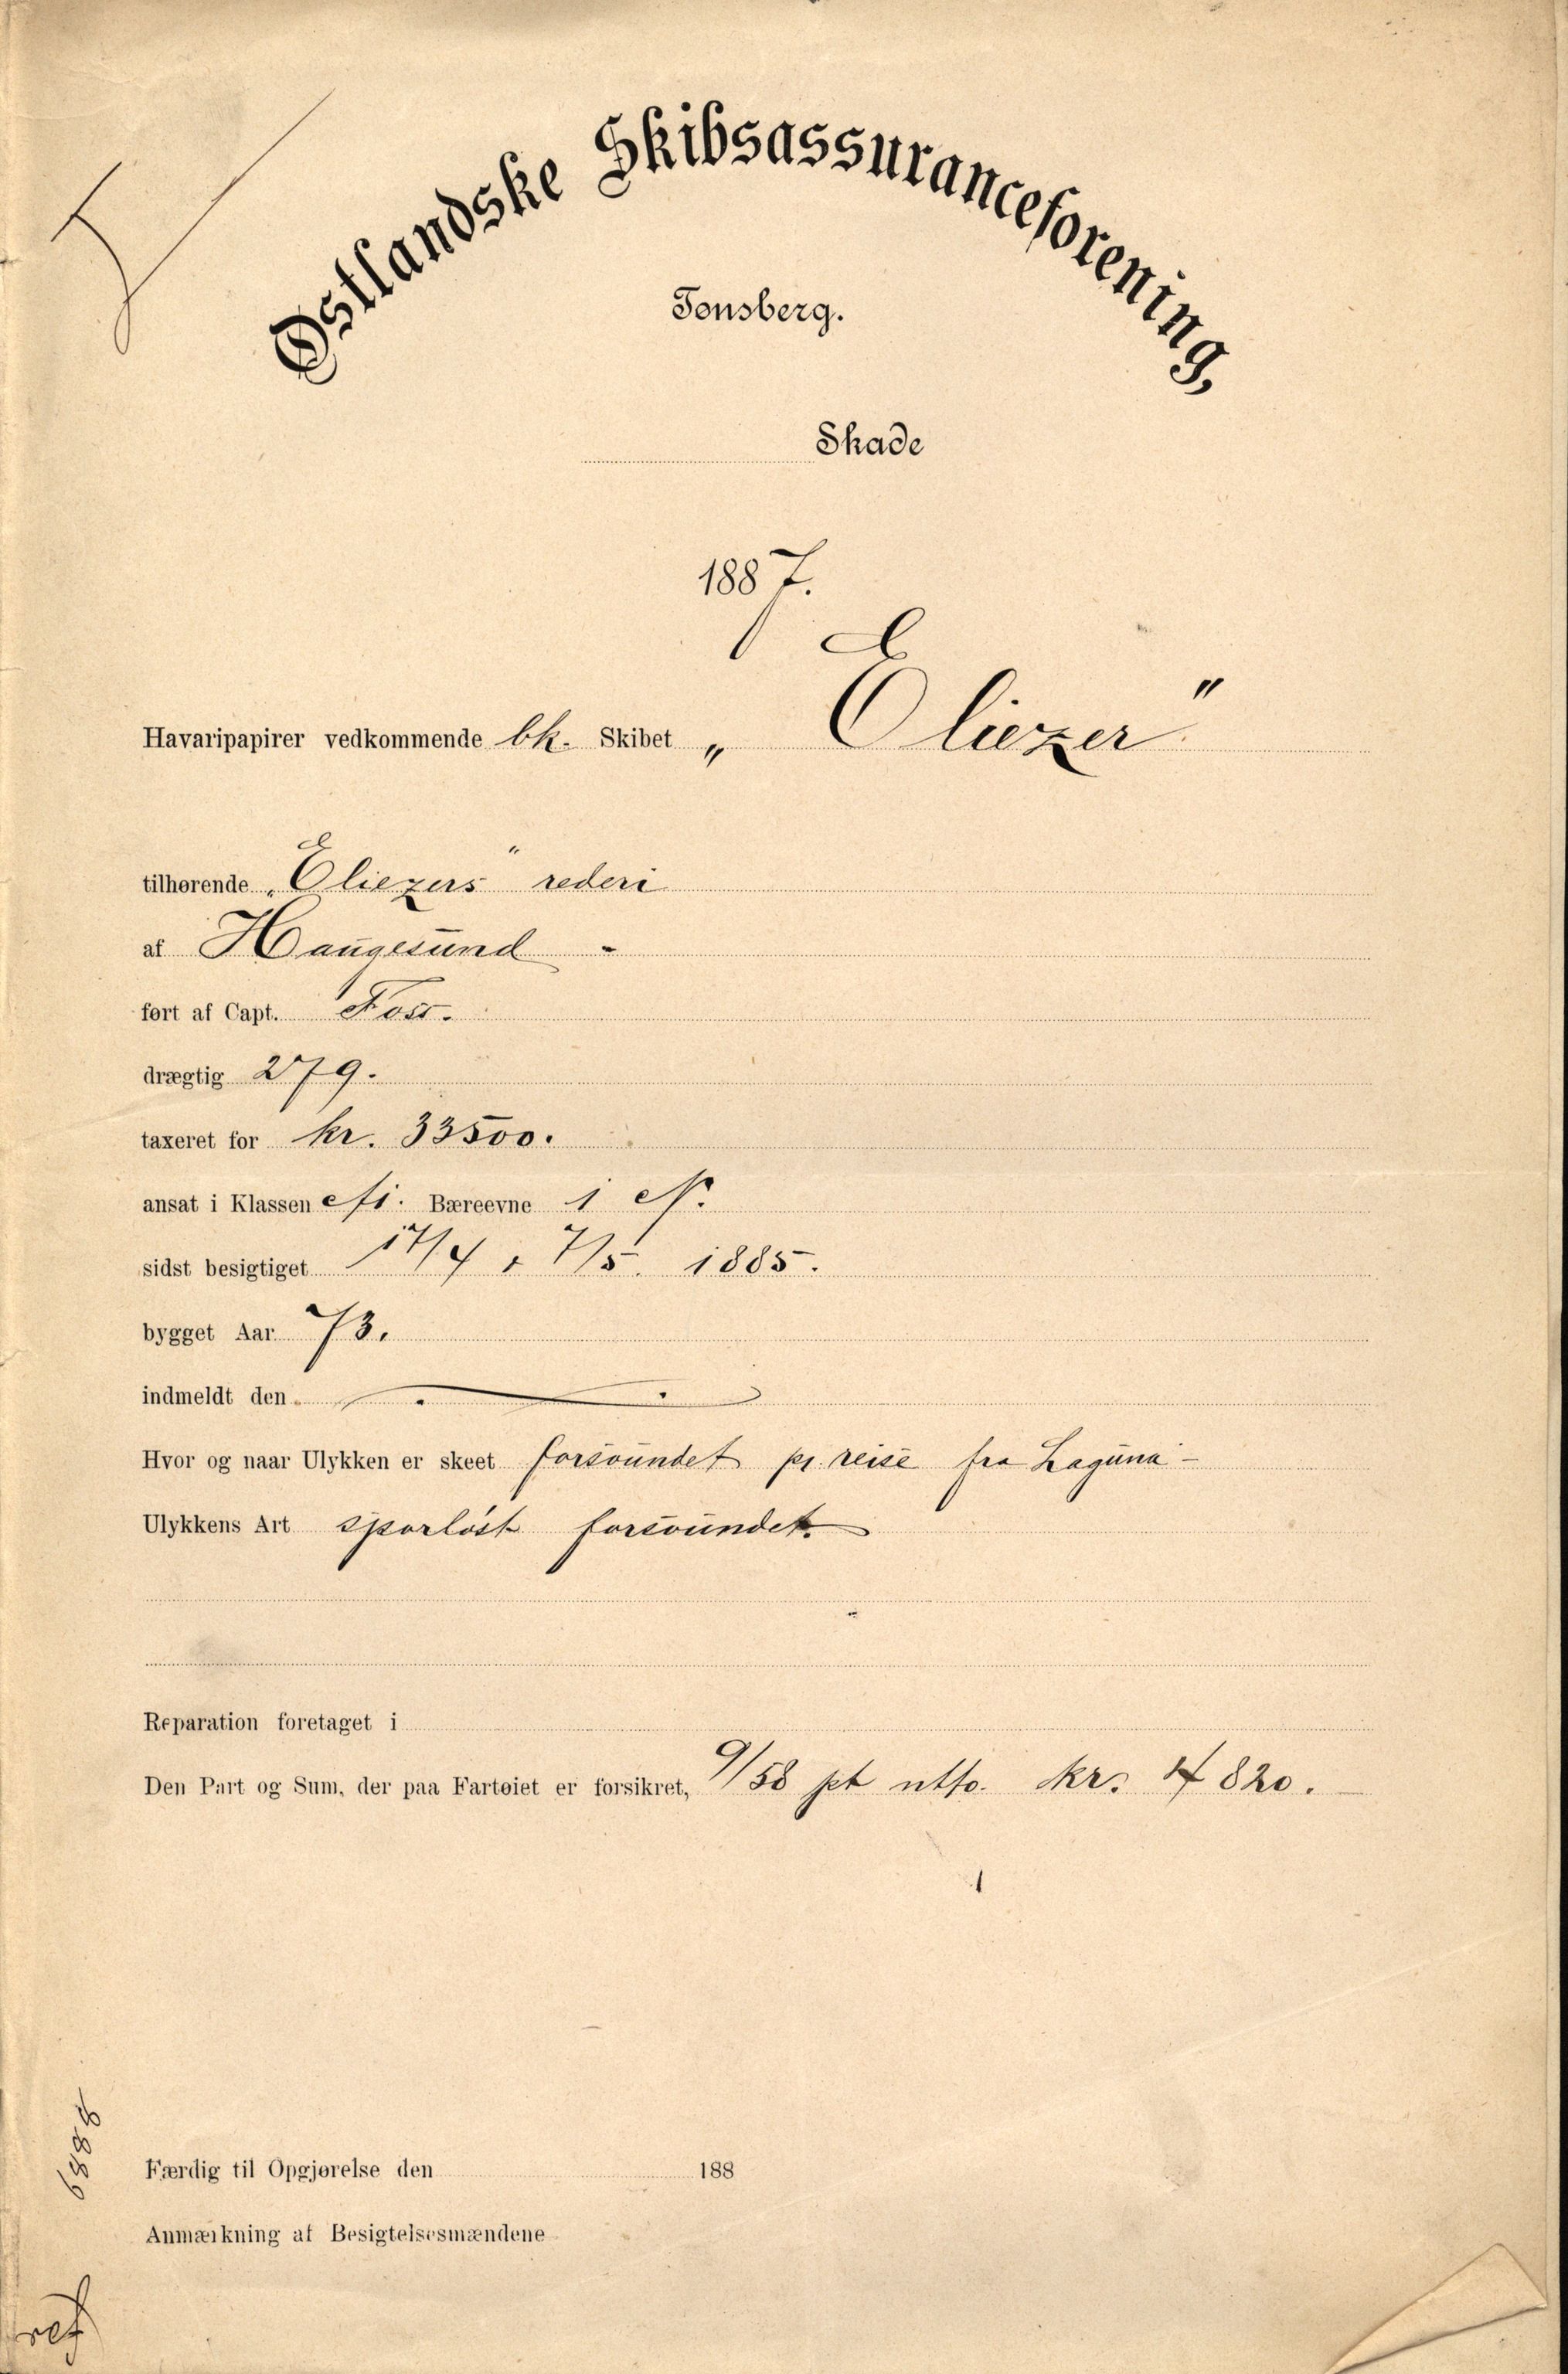 Østlandske Skibsassuranceforening,
Tønsberg.
Skade
1887.
Havaripapirer vedkommende bk. Skibet „Eliezer"
tilhørende „Eliezers" rederi
af Haugesund -
ført af Capt. Foss.
drægtig 279.
taxeret for kr. 33500.
ansat i Klassen Bæreevne 1
sidst besigtiget 17/4 7/5. 1885.
bygget Aar 73.
indmeldt den
Hvor og naar Ulykken er skeet forsvundet pr. reise fra Laguna -
Ulykkens Art sporløst forsvundet.
Reparation foretaget i
Den Part og Sum, der paa Fartøiet er forsikret, 9/58 pt ntto. kr. 4820.
Færdig til Opgjørelse den 188
Anmærkning af Besigtelsesmændene